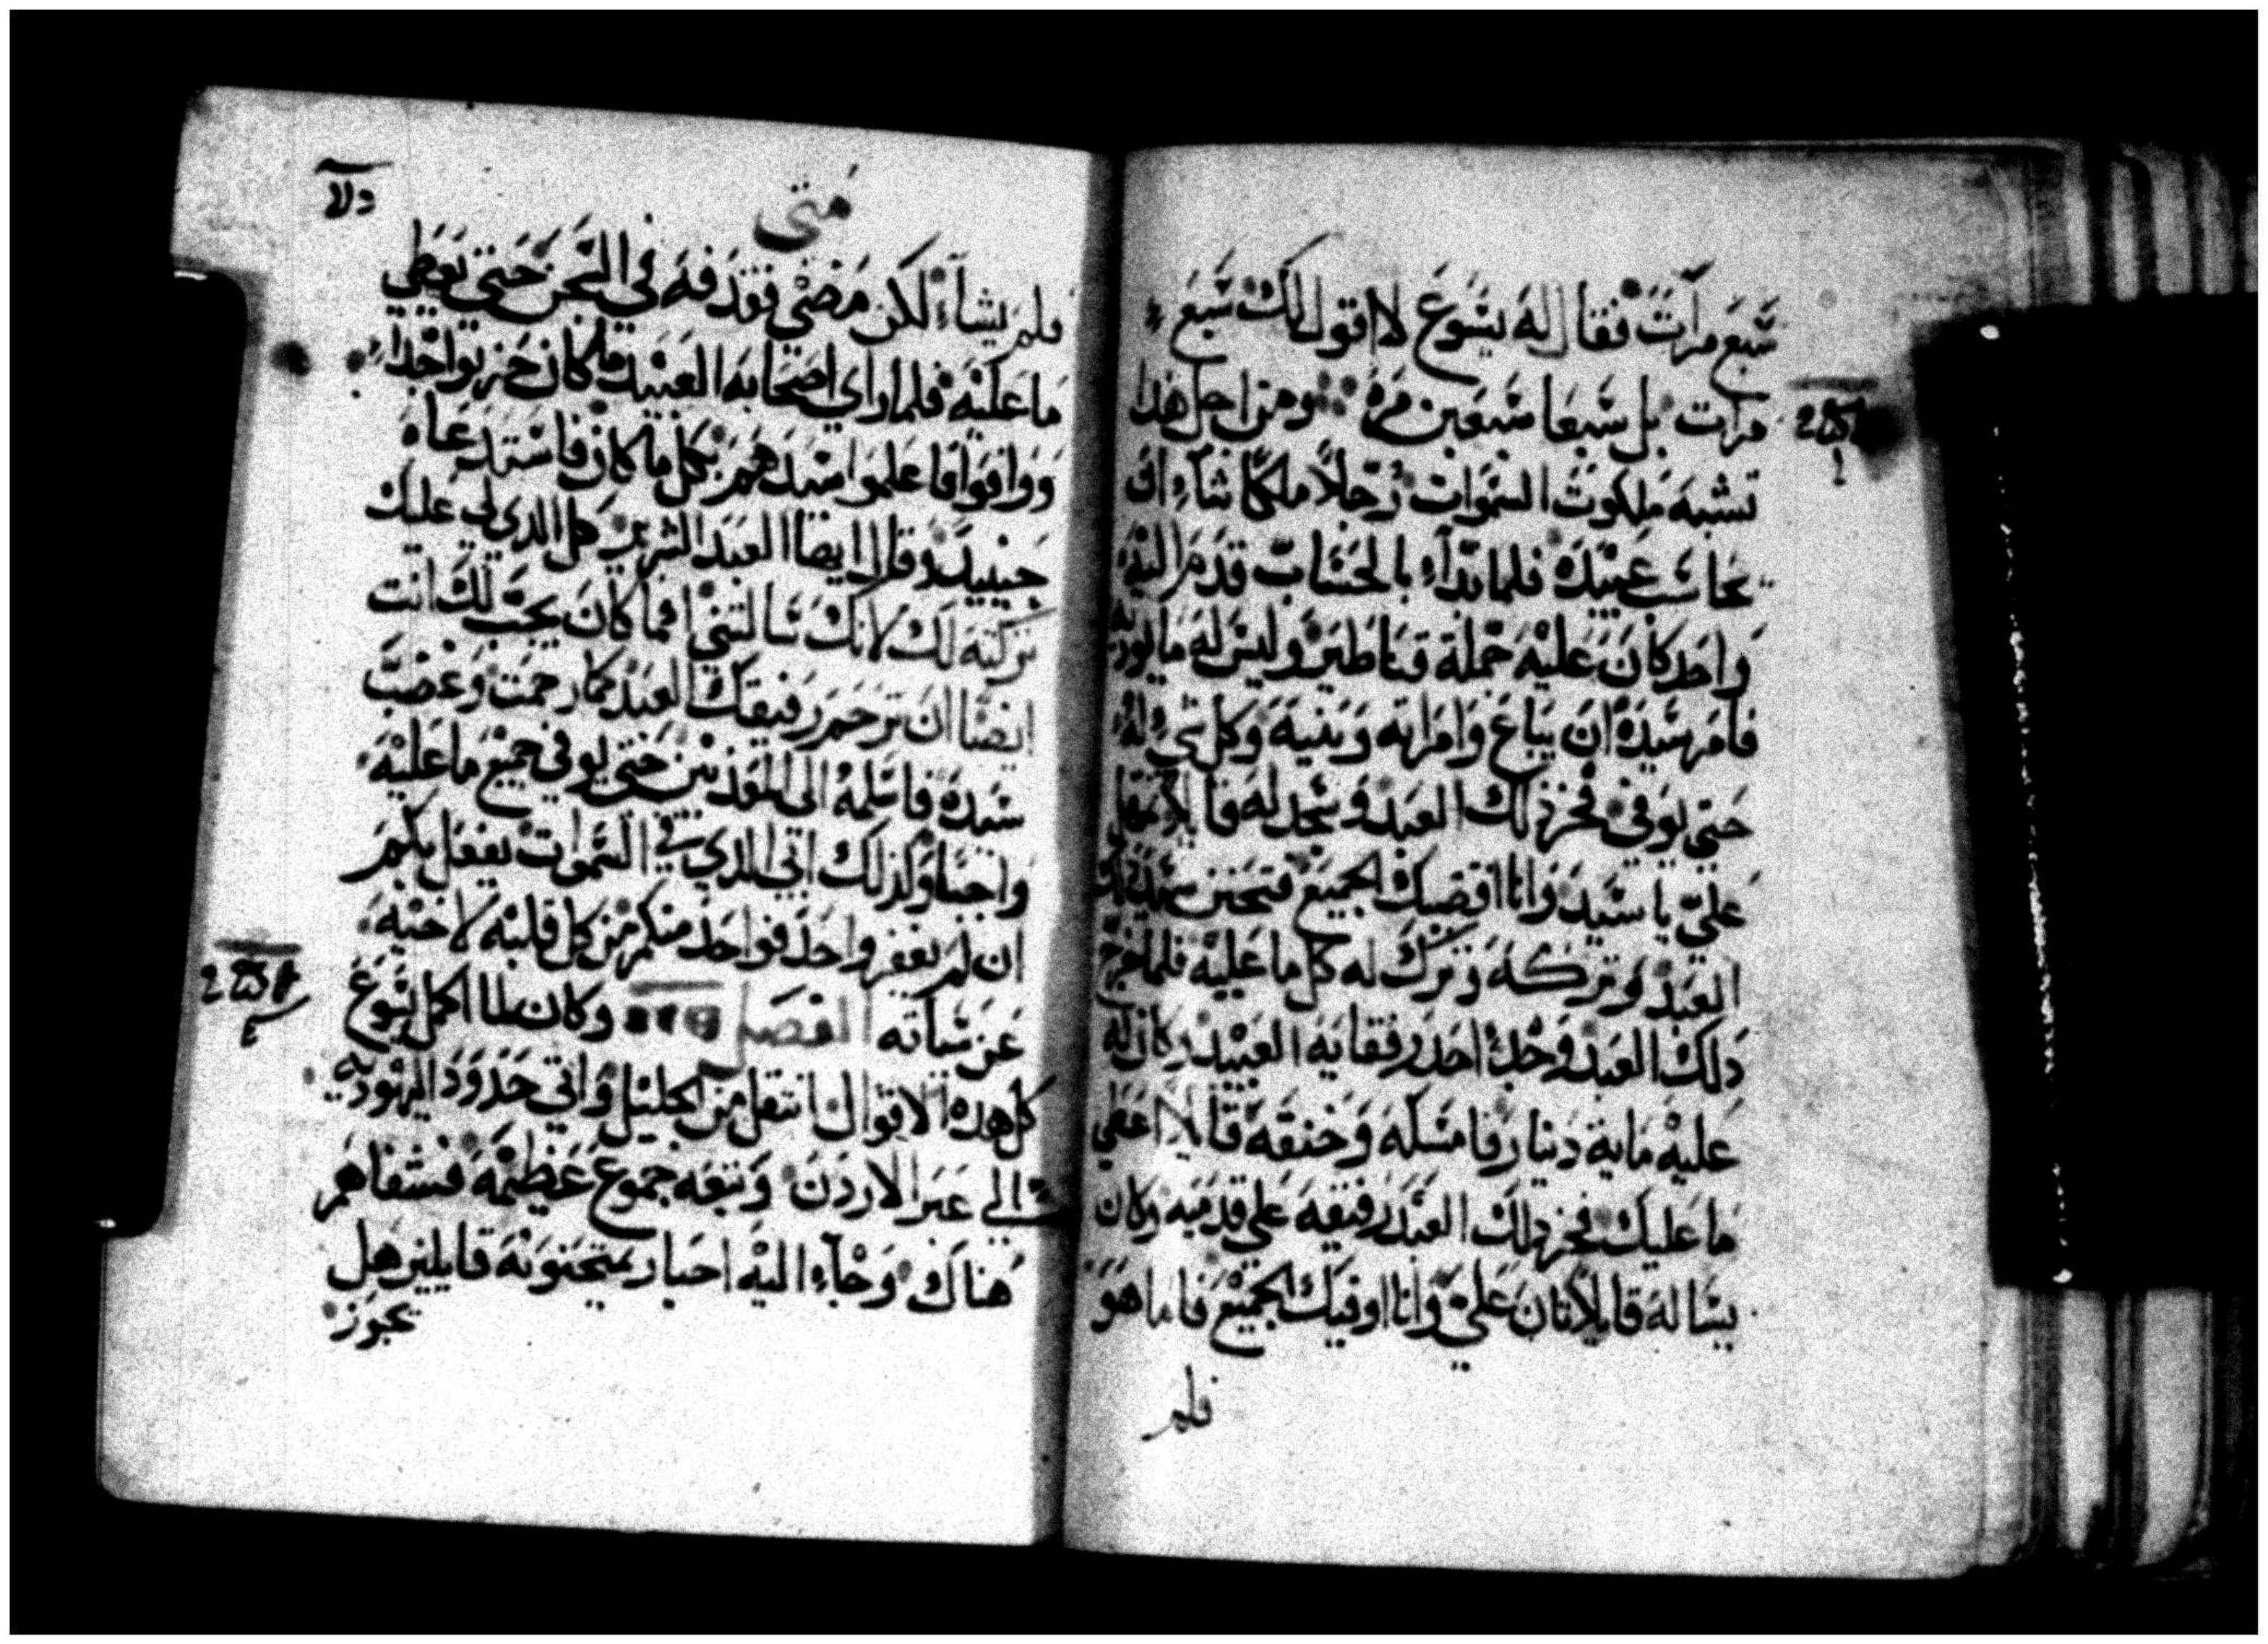 سَبع مرات فقال له يسَوع لا اقول لك سَبع
مرات بل سَبعا سَبعين مره ومن اجل هذا
تشبه ملكوت السَموات رجلاً ملكًا شآء ان
يحاسَب عبيده فلما بدآء بالحسَاب قدم اليه
واحد كان عليه جملة قناطير وليسَ له ما يوديه
فامر سَيده ان يباع وامراته وبنيه وكل شي له
حتي يوفي فخر ذلك العبد وسَجد له قايلاً تمهل
علىّ يا سَيد وانا اقضيك الجميع فتحنن سَيد ذلك
العبد وتركه وترك له كل ما عليه فلما خرج
ذلك العبد وجد احد رفقايه العبيد وكان له
عليه ماية دينار فامسَكه وخنقه قايلاً اعطي
ما عليك فخر ذلك العبد رفيقه علي قدميه وكان
يسَاله قايلاً تان علىّ وانا اوفيك الجميع فاما هو
فلم
متى
فلم يشآء لكن مضى فقدفه في السَجن حتى يعطي
ما عليه فلما راي اصحابه العبيد ما كان حزنوا جداً
ووافوا فاعلموا سَيدهم بكل ما كان فاسَتدعاه
حينيد وقال ايضا العبد الشرير كل الدي لي عليك
تركته لك لانك سَالتني افما كان يجب لك انت
ايضًا ان ترحم رفيقك العبد كما رحمت وغضب
سَيده فاسَلمه الى المعدبين حتي يوفي جميع ما عليه
واجبا وكذلك ابي الدي في السَموات يفعل بكم
ان لم يغفر واحد فواحد منكم من كل قلبه لاخيه
عن سَياته الفصل وكان لما اكمل يسَوع
كل هده الاقوال انتقل من الجليل واتي حدود اليهوديه
الي عبر الاردن وتبعه جموع عظيمه فشفاهم
هناك وجآء اليه احبار يمتحنونه قايلين هل
يجوز